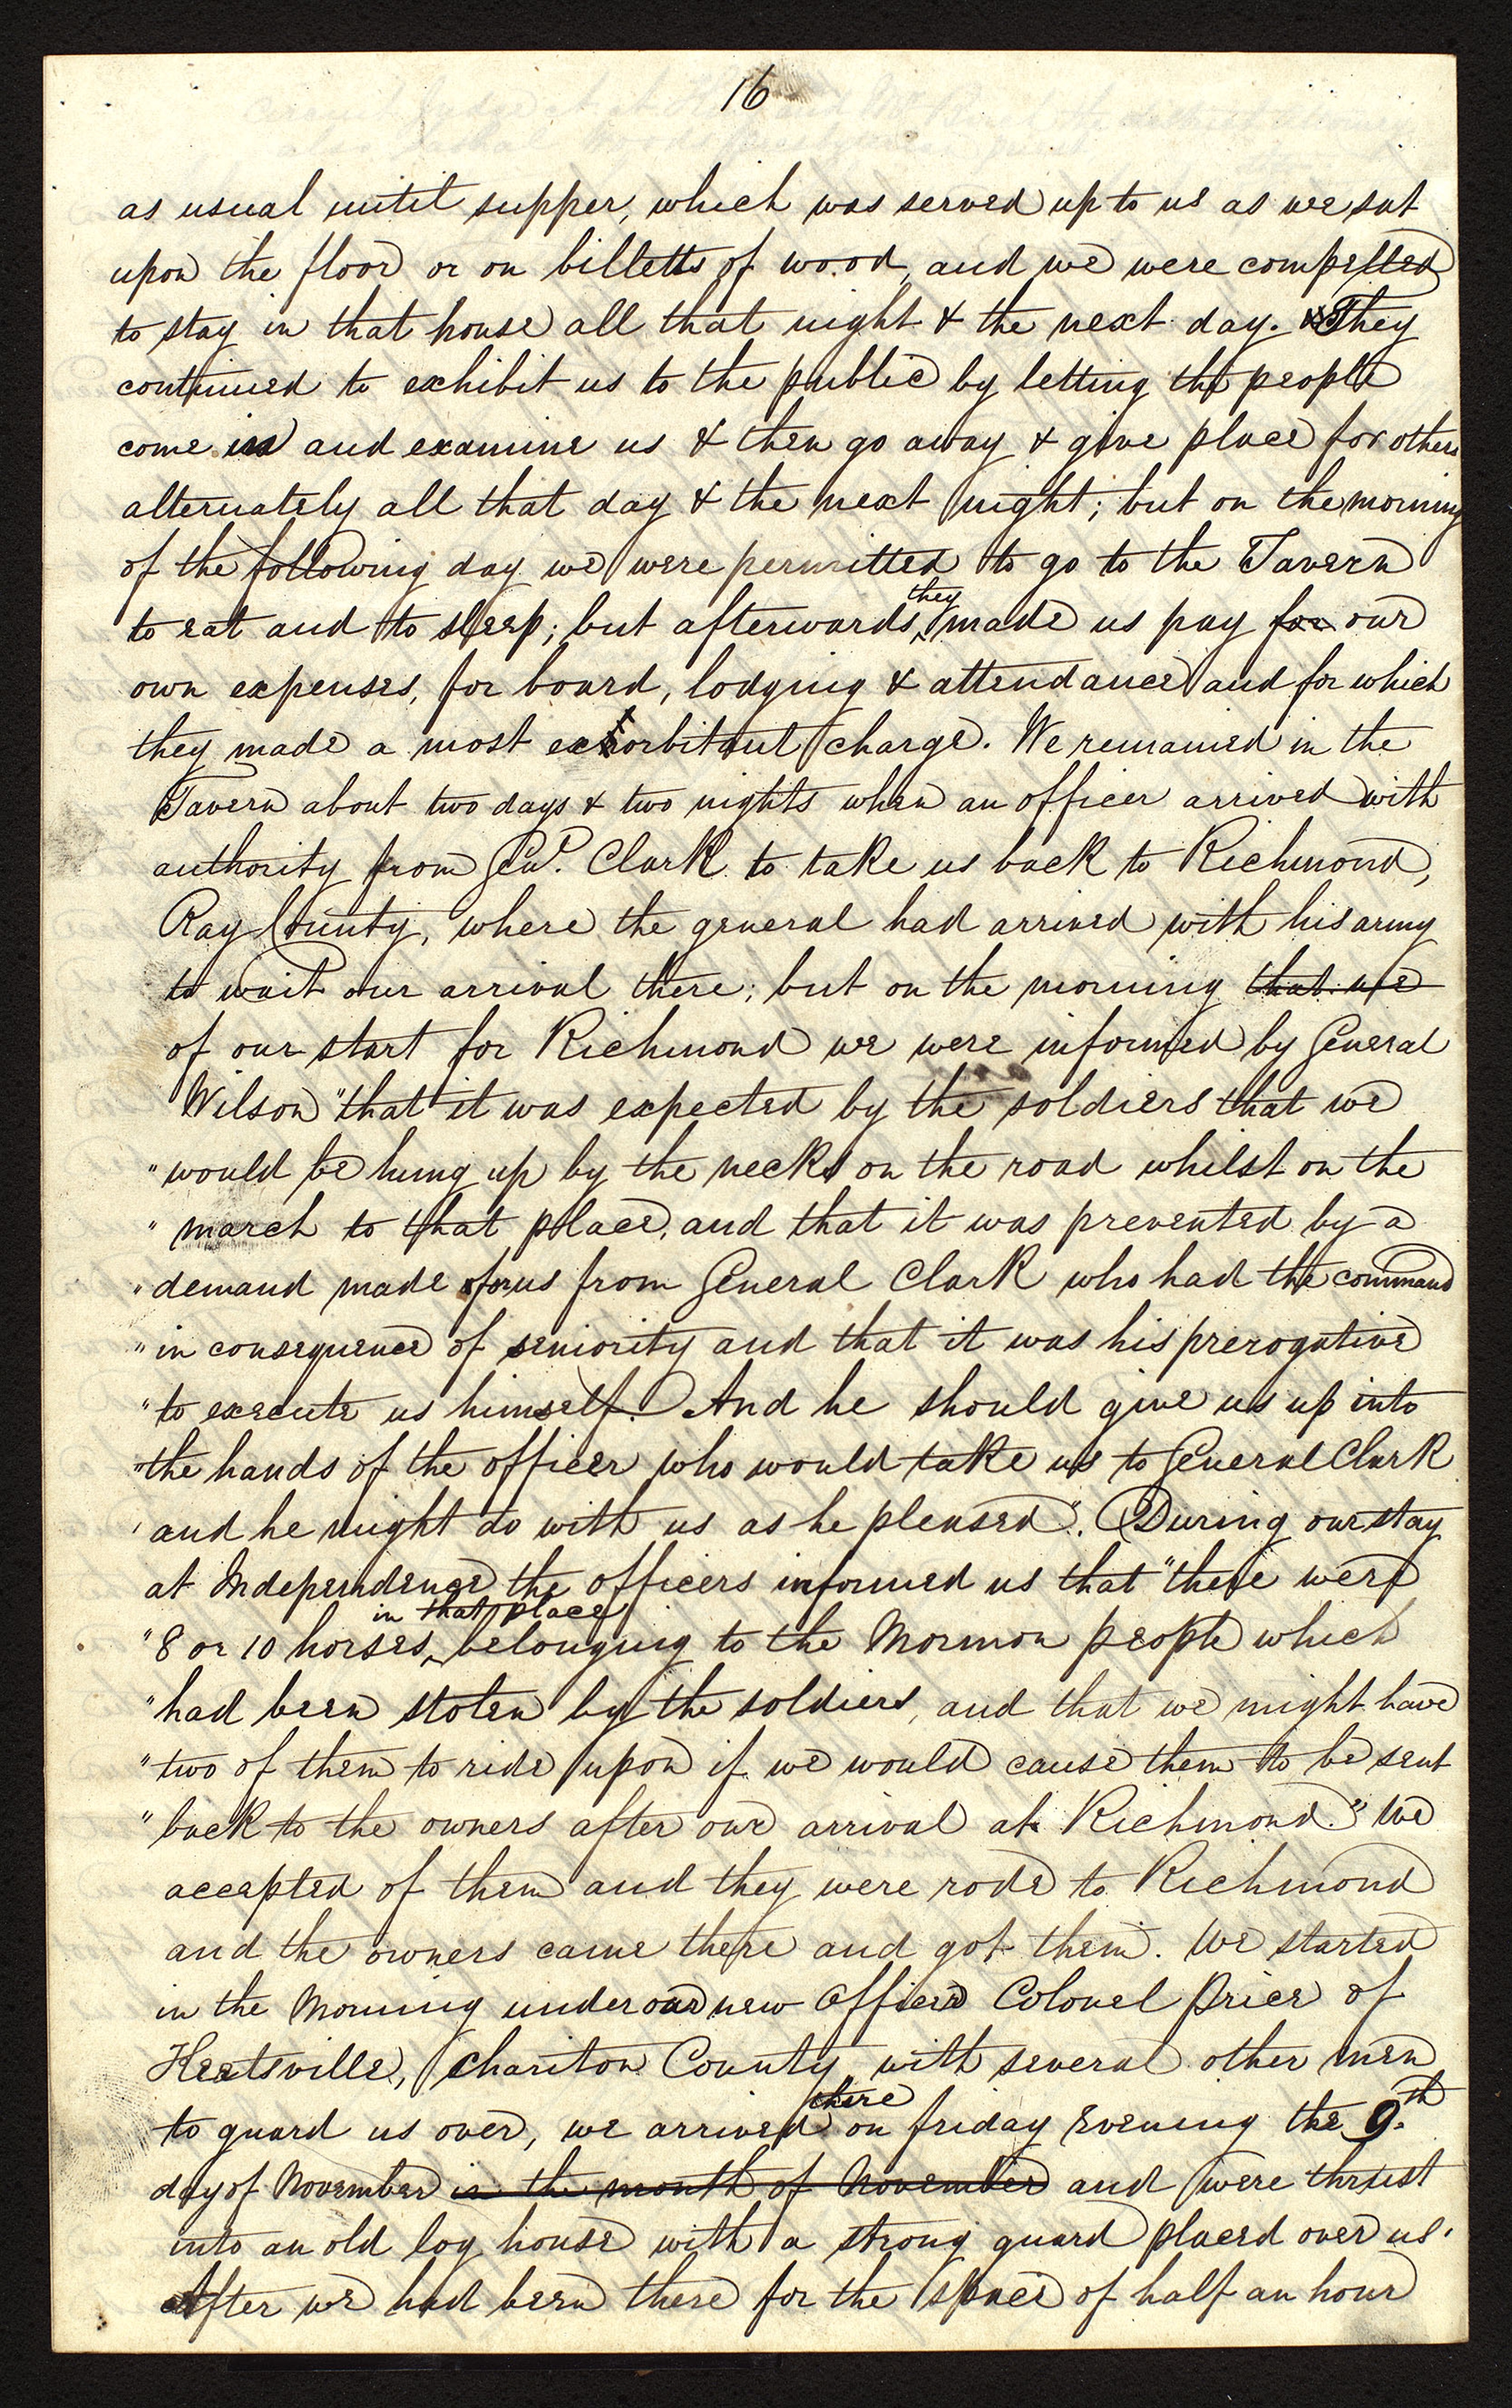 16
as usual until supper, which was served up to us as we sat
upon the floor or on billetts of wood, and we were compelled
to stay in that house all that night & the next day. They
continued to exhibit us to the public by letting the people
come in and examine us & then go away & give place for others
alternately all that day & the next night; but on the morning
of the following day we were permitted to go to the Tavern
to eat and to sleep; but afterwards they made us pay for our
own expenses, for board, lodging & attendance and for which
they made a most exhorbitant charge. We remained in the
Tavern about two days & two nights when an officer arrived with
authority from Genl. Clark to take us back to Richmond,
Ray County, where the general had arrived with his army
to wait our arrival there; but on the morning that we
of our start for Richmond we were informed by General
Wilson "that it was expected by the soldiers that we
" would be hung up by the necks on the road whilst on the
" march to that place, and that it was prevented by a
" demand made for us from General Clark who had the command
" in consequence of seniority and that it was his prerogative
" to execute us himself. And he should give us up into
" the hands of the officer who would take us to General Clark
" and he might do with us as he pleased". During our stay
at Independence the officers informed us that "there were
" 8 or 10 horses in that place belonging to the Mormon people which
" had been stolen by the soldiers, and that we might have
" two of them to ride upon if we would cause them to be sent
" back to the owners after our arrival at Richmond." We
accepted of them and they were rode to Richmond
and the owners came there and got them. We started
in the Morning under our new officer Colonel Price of
Keetsville, Chariton County with several other men
to guard us over, we arrived there on friday Evening the 9th
day of November in the month of November and were thrust
into an old log house with a strong guard placed over us.
After we had been there for the space of half an hour